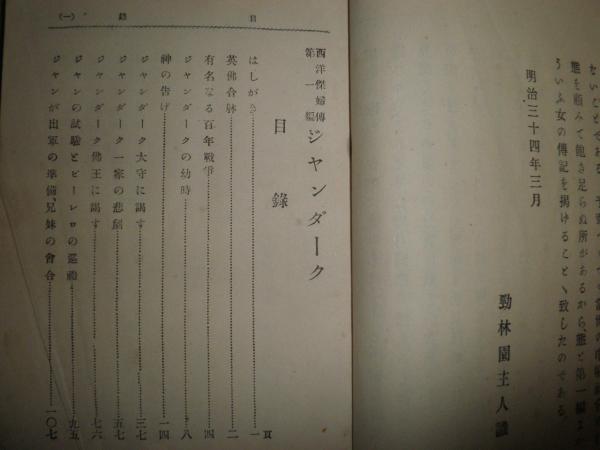 ないことである
態を顧みて飽き足らぬ所があるから、態と第一編に
ういふ女の傳記を掲げることゝ致したのである、
明治三十四年三月
勁林園主人識
目錄 (一)
西洋傑婦傳第一編 ジャンダーク
目錄
頁
はしがき………一
英佛合併………二
有名なる百年戰爭………四
ジャンダークの幼時………八
神の告げ………一四
ジャンダーク太守に謁す………三七
ジャンダーク一家の悲劇………五七
ジャンダーク佛王に謁す………七六
ジャンの試驗とピーレロの巡禮………九五
ジャンが出軍の準備、兄妹の會合………一〇七